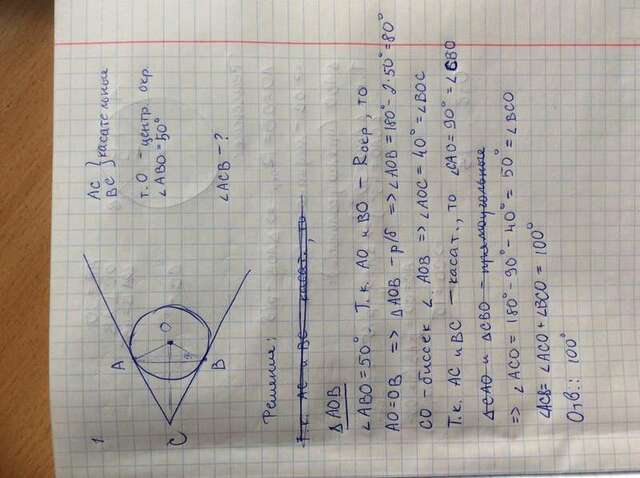 1
A
C
O
B
AC
BC } касательные
т. O - центр окр.
∠ABO = 50°
∠ACB - ?
Решение:
Т.к. AC и BC касат., то
△AOB
∠ABO = 50°. Т.к. AO и BO - Rокр, то
AO = OB => △AOB - р/б => ∠AOB = 180° - 2·50° = 80°
CO - биссек ∠ AOB => ∠AOC = 40° = ∠BOC
Т.к. AC и BC - касат., то ∠CAO = 90° = ∠CBO
△CAO и △CBO - прямоугольные
=> ∠ACO = 180° - 90° - 40° = 50° = ∠BCO
∠ACB = ∠ACO + ∠BCO = 100°
Отв.: 100°